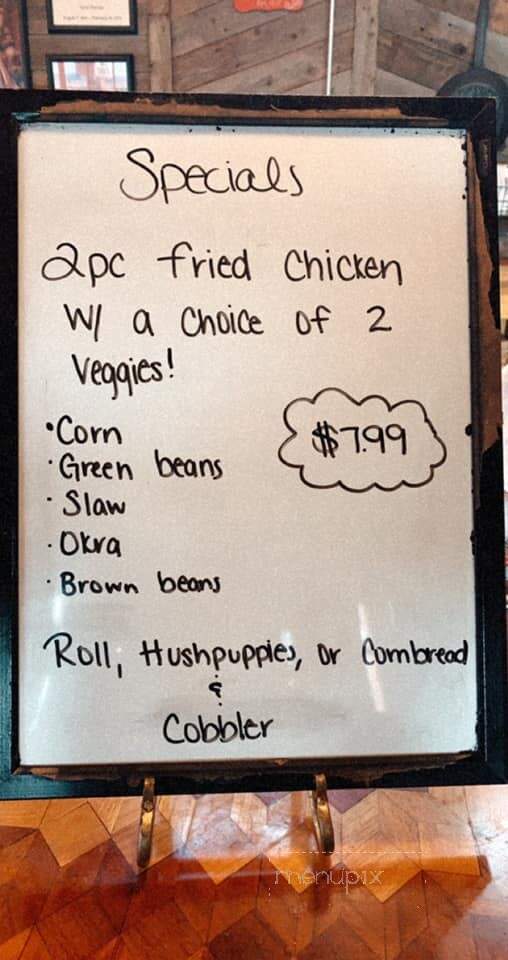 Specials
2pc fried Chicken
W/ a Choice of 2
Veggies!
•Corn
$7.99
·Green beans
·Slaw
·Okra
·Brown beans
Roll, Hushpuppies, or Cornbread
&
Cobbler
menupix